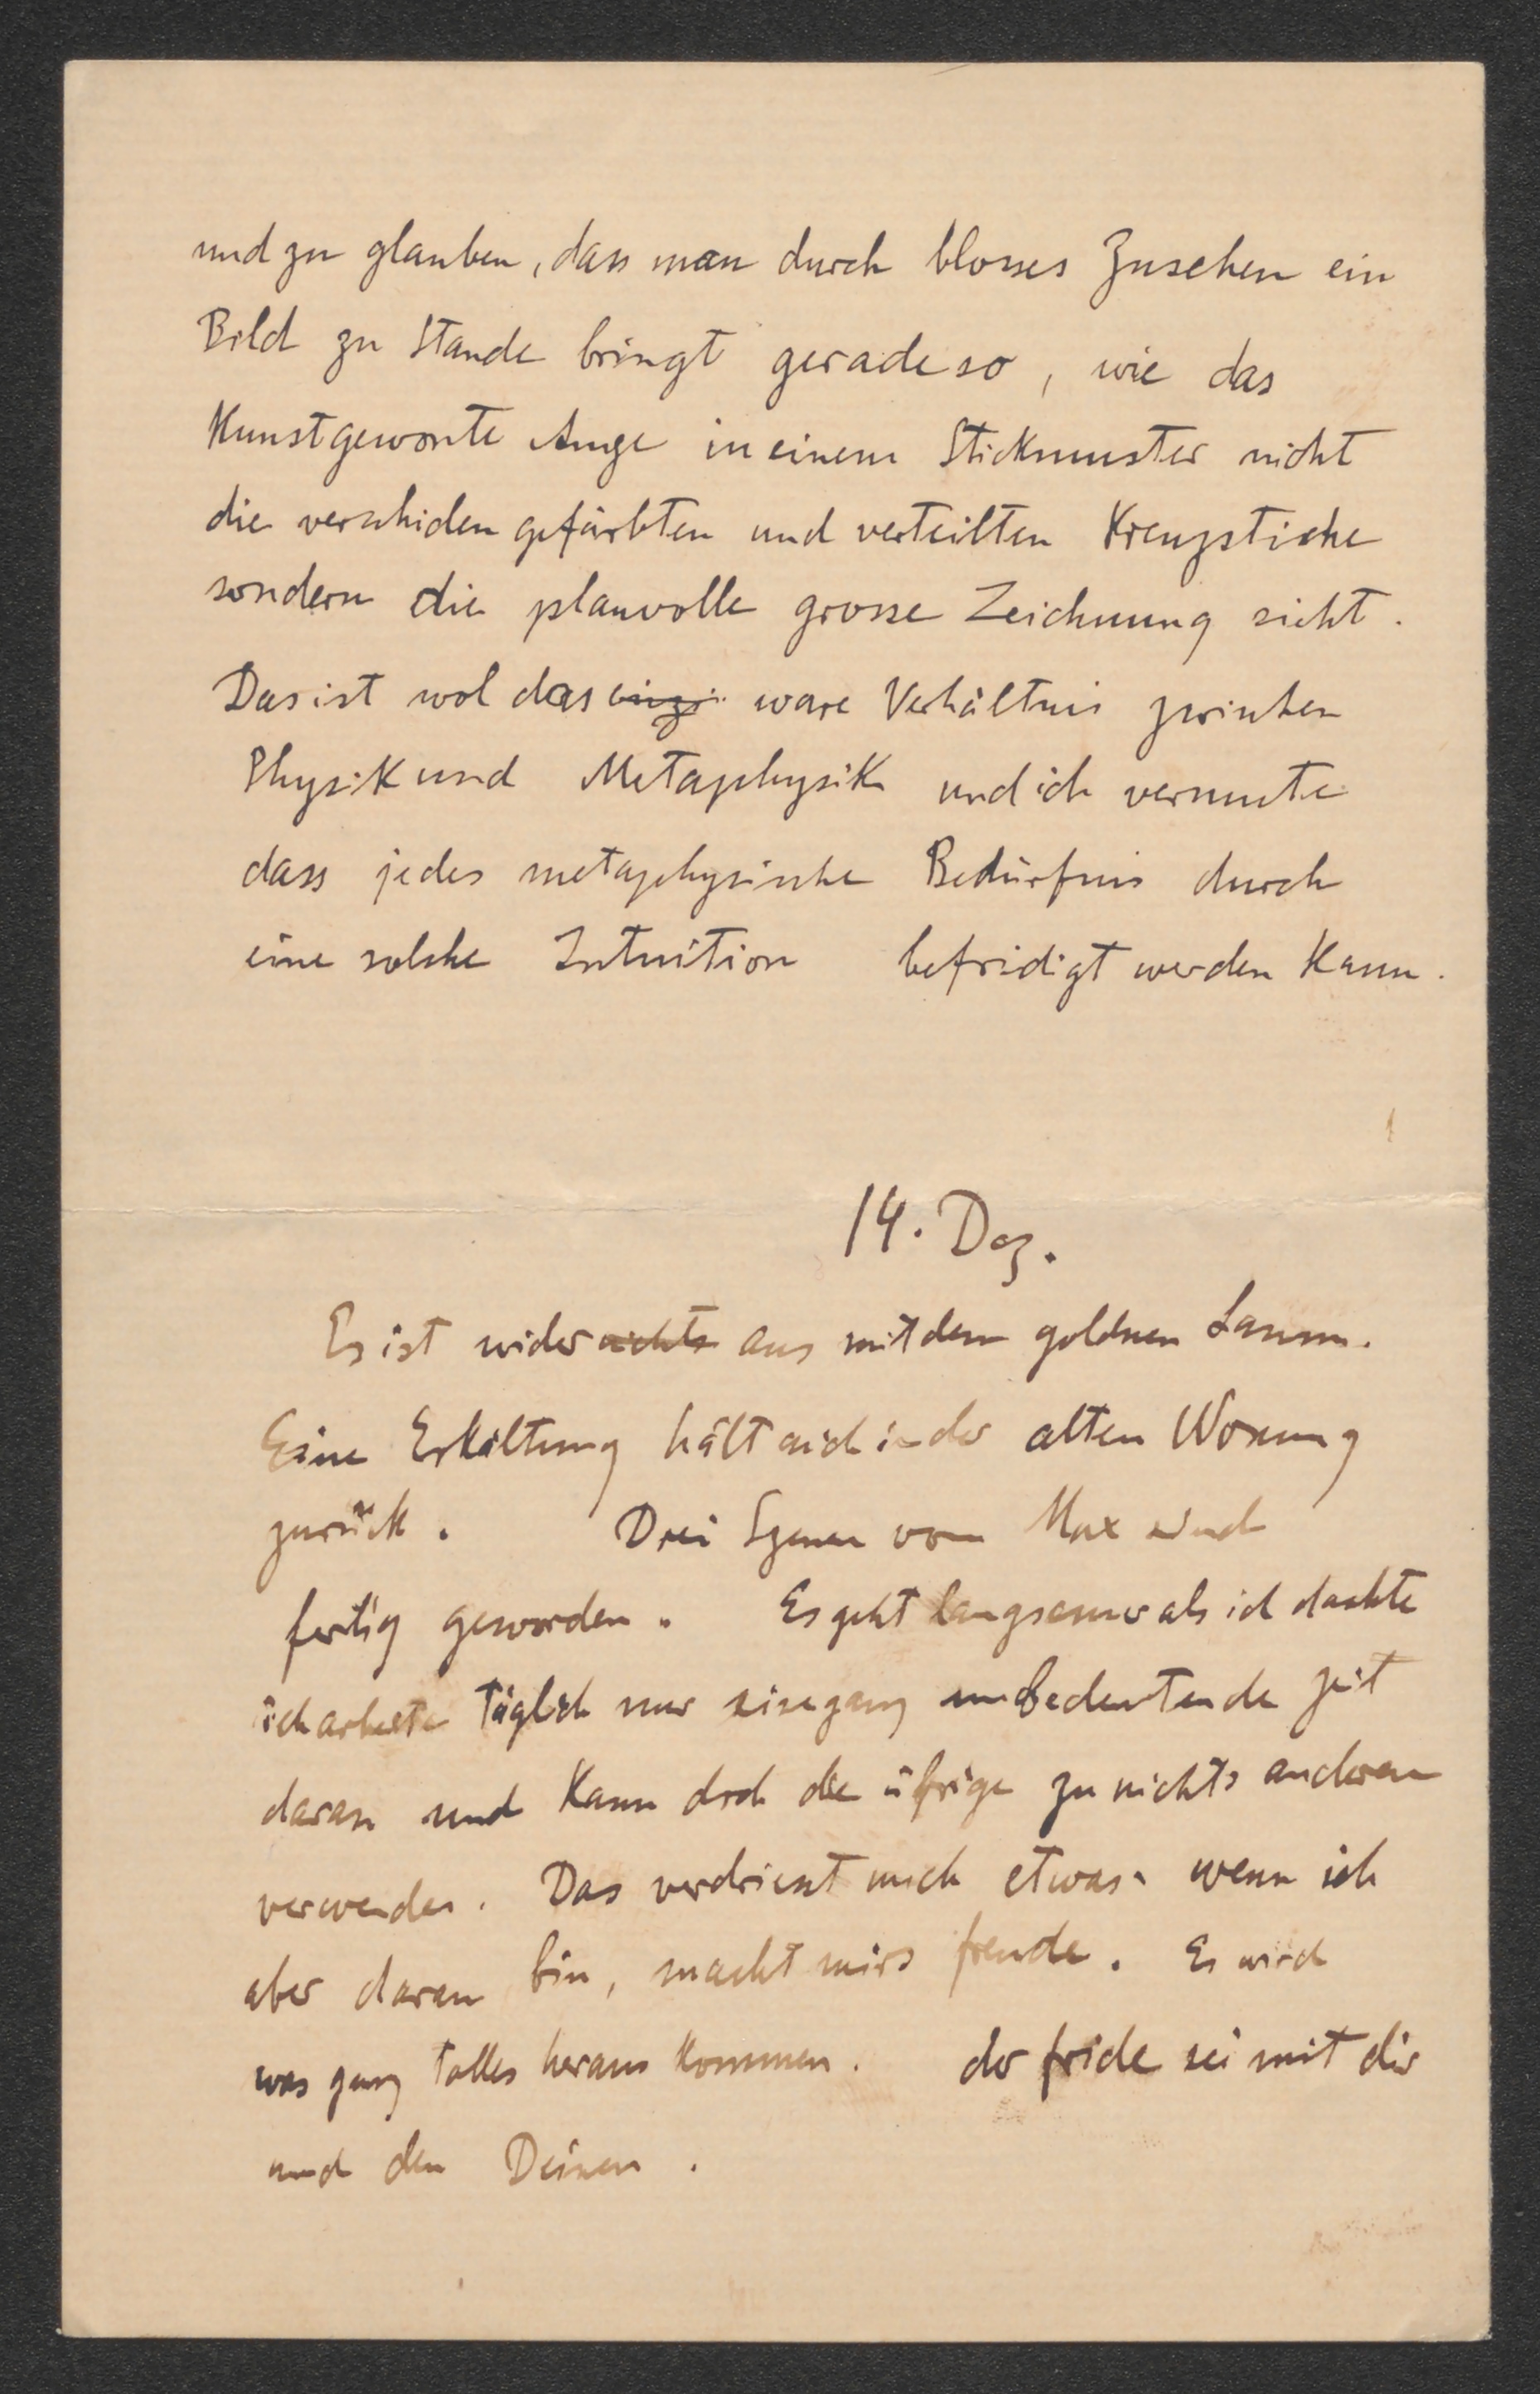 und zu glauben, dass man durch blosses Zusehen ein
Bild zu Stande bringt gerade so, wie das
Kunstgewonte Auge in einem Stickmuster nicht
die verschiden gefärbten und verteilten Kreuzstiche
sondern die planvolle grosse Zeichnung sieht.
Das ist wol das einzi ware Verhältnis zwischen
Physik und Metaphysik und ich vermute
dass jedes metaphysische Bedürfnis durch
eine solche Intuition befridigt werden kann.
14. Dez.
Es ist wider nichts aus mit dem goldnen
Eine Erkältung hält mich in der alten Wonung
zurück. Drei Szenen vom Max sind
fertig geworden. Es geht langsamer als ich dachte
ich arbeite täglich nur eine ganz unbedeutende zeit
daran und kann doch die übrige zu nichts anderem
verwenden. Das verdriesst mich etwas. wenn ich
aber daran bin, macht mirs freude. Es wird
was ganz tolles heraus kommen. der fride sei mit dir
und den Deinen.